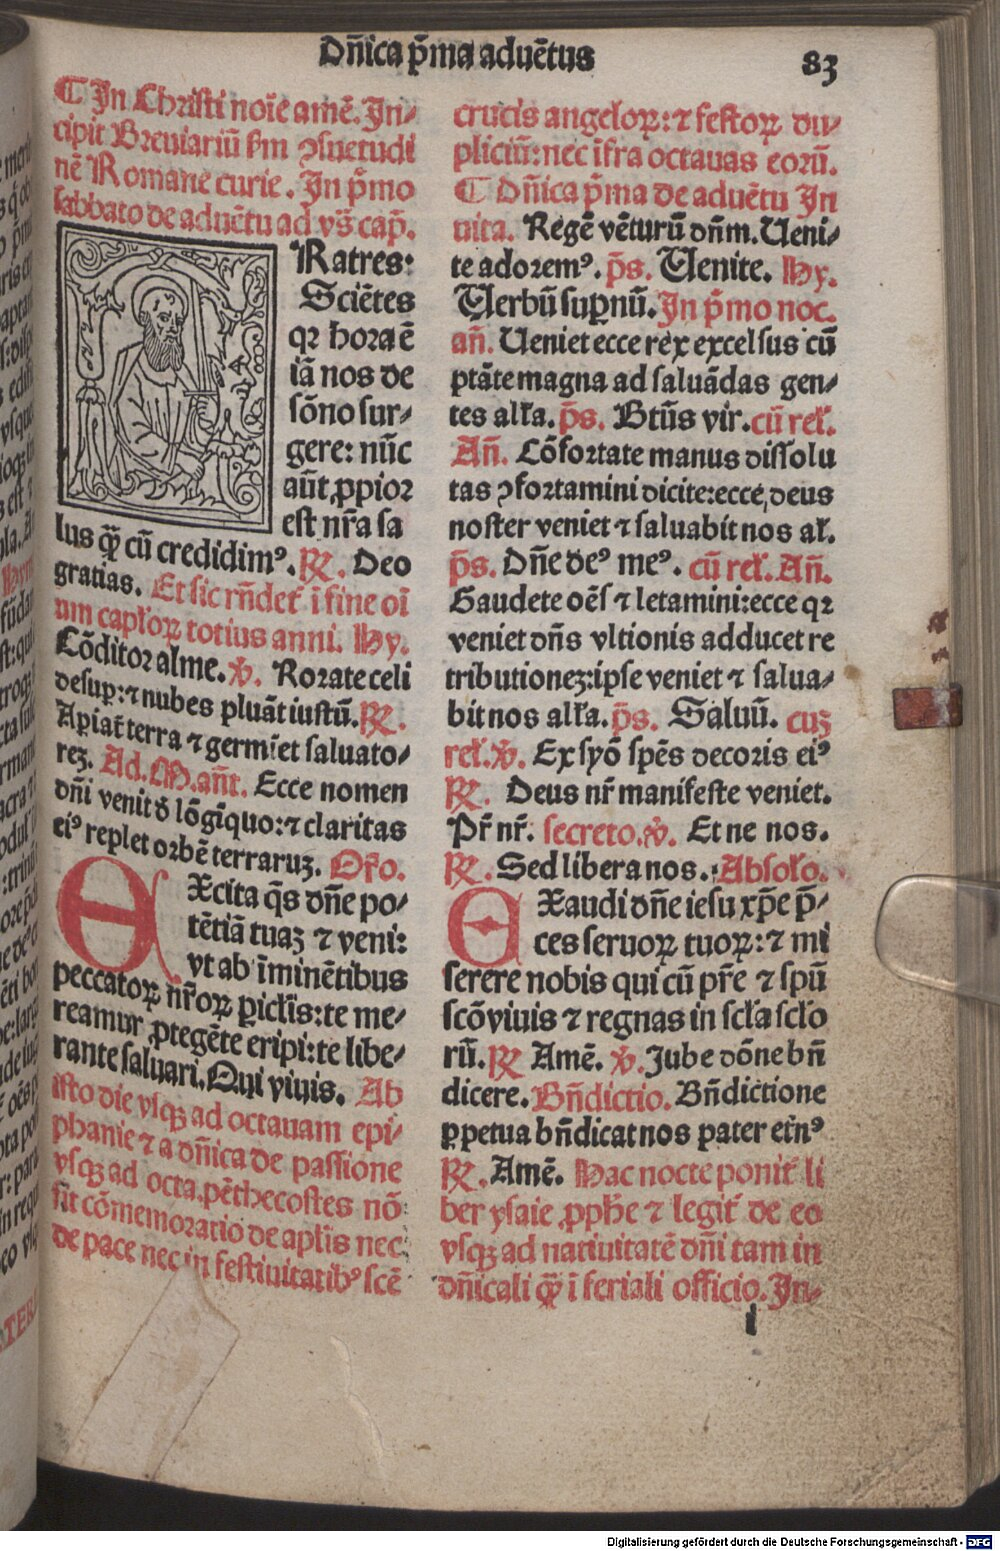 Dn̄ica p̄ma aduētus
83
¶ In Christi noīe amē. In⸗
cipit Breuiariū ſm ↄſuetudi
nē Romane curie. In p̄mo
ſabbato de aduētu ad vs̄ cap̄.
Ratres:
Sciētes
qꝛ hora ē
iā nos de
ſōno ſur⸗
gere: nūc
aūt ꝓpior
eſt nr̄a ſa
lus qꝫ̄ cū credidimꝰ. ℞. Deo
gratias. Et ſic rn̄det̄ ī fine oī
um capl̓oꝝ totius anni. Hy.
Cōditor alme. ꝟ. Rorate celi
deſuꝑ: ⁊ nubes pluāt iuſtū. ℞.
Apiat̄ terra ⁊ germīet ſaluato⸗
reꝫ. Ad. M. ant̄. Ecce nomen
dn̄i venit ð lōgīquo: ⁊ claritas
eiꝰ replet orbē terraruꝫ. Or̓o.
EXcita qs̄ dn̄e po⸗
tētiā tuaꝫ ⁊ veni:
vt ab īminētibus
peccatoꝝ nr̄oꝝ ꝑicl̓is: te me⸗
reamur ꝓtegēte eripi: te libe⸗
rante ſaluari. Qui viuis. Ab
iſto die vſqꝫ ad octauam epi⸗
phanie ⁊ a dn̄ica de paſſione
vſqꝫ ad octa. pēthecoſtes nō
ſit cōmemoratio de aplīs nec
de pace nec in feſtiuitatibꝰ ſcē
crucis angeloꝝ: ⁊ feſtoꝝ du⸗
pliciū: nec īfra octauas eorū.
¶ Dn̄ica p̄ma de aduētu In
uita. Regē vēturū dn̄m. Ueni⸗
te adoremꝰ. p̄s. Uenite. Hy.
Uerbū ſuꝑnū. In p̄mo noc.
an̄. Ueniet ecce rex excelſus cū
ptāte magna ad ſaluādas gen⸗
tes all̓a. p̄s. Btūs vir. cū rel̓.
An̄. Cōfortate manus diſſolu
tas ↄfortamini dicite: ecce deus
noſter veniet ⁊ ſaluabit nos al̓.
p̄s. Dn̄e deꝰ meꝰ. cū rel̓. An̄.
Gaudete oēſ ⁊ letamini: ecce qꝛ
veniet dn̄s vltionis adducet re
tributioneꝫ: ipſe veniet ⁊ ſalua⸗
bit nos all̓a. p̄s. Saluū. cuꝫ
rel̓. ꝟ. Ex ſyō ſpēs decoris eiꝰ
℞. Deus nr̄ manifeſte veniet.
Pr̄ nr̄. ſecreto. ꝟ. Et ne nos.
℞. Sed libera nos. Abſol̓o.
EXaudi dn̄e ieſu xp̄e p̄⸗
ces ſeruoꝝ tuoꝝ: ⁊ mi
ſerere nobis qui cū pr̄e ⁊ ſpū
ſcō viuis ⁊ regnas in ſcl̓a ſcl̓o
rū. ℞ Amē. ꝟ. Jube dōne bn̄
dicere. Bn̄dictio. Bn̄dictione
ꝑpetua bn̄dicat nos pater et̄nꝰ
℞. Amē. Hac nocte ponit̄ li
ber yſaie ꝓphe̓ ⁊ legit̄ de eo
vſqꝫ ad natiuitatē dn̄i tam in
dn̄icali qꝫ̄ ī feriali officio. In⸗
l
Digitalisierung gefördert durch die Deutsche Forschungsgemeinschaft - DFG